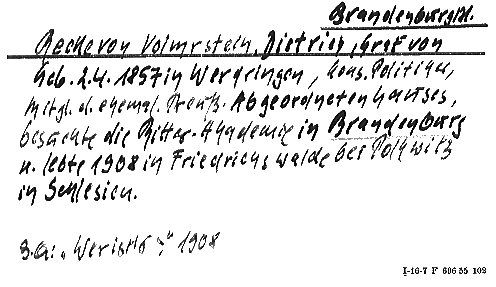 Brandenburg/H.
Recke von Volmrstein, Dietrich, Graf von
Geb. 2.4. 1857 in Werdringen, kons. Politiker,
Mitgl. d. ehemal. Preuß. Abgeordnetenhauses,
besuchte die Ritter-Akademie in Brandenburg
u. lebte 1908 in Friedrichswalde bei Polkwitz
in Schlesien.
z.A.: "Wer ist's?" 1908
I-16-7 F 606 55 109